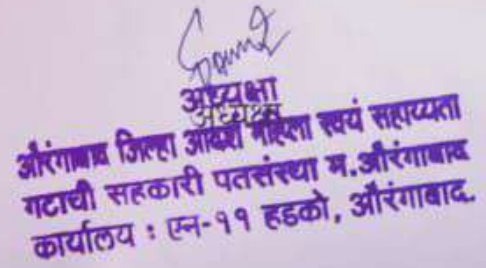 अध्यक्षा
अध्यक्षा
औरंगाबाद जिल्हा आदर्श महिला स्वयं सहाय्यता
गटाची सहकारी पतसंस्था म.औरंगाबाद
कार्यालय : एन-११ हडको, औरंगाबाद.